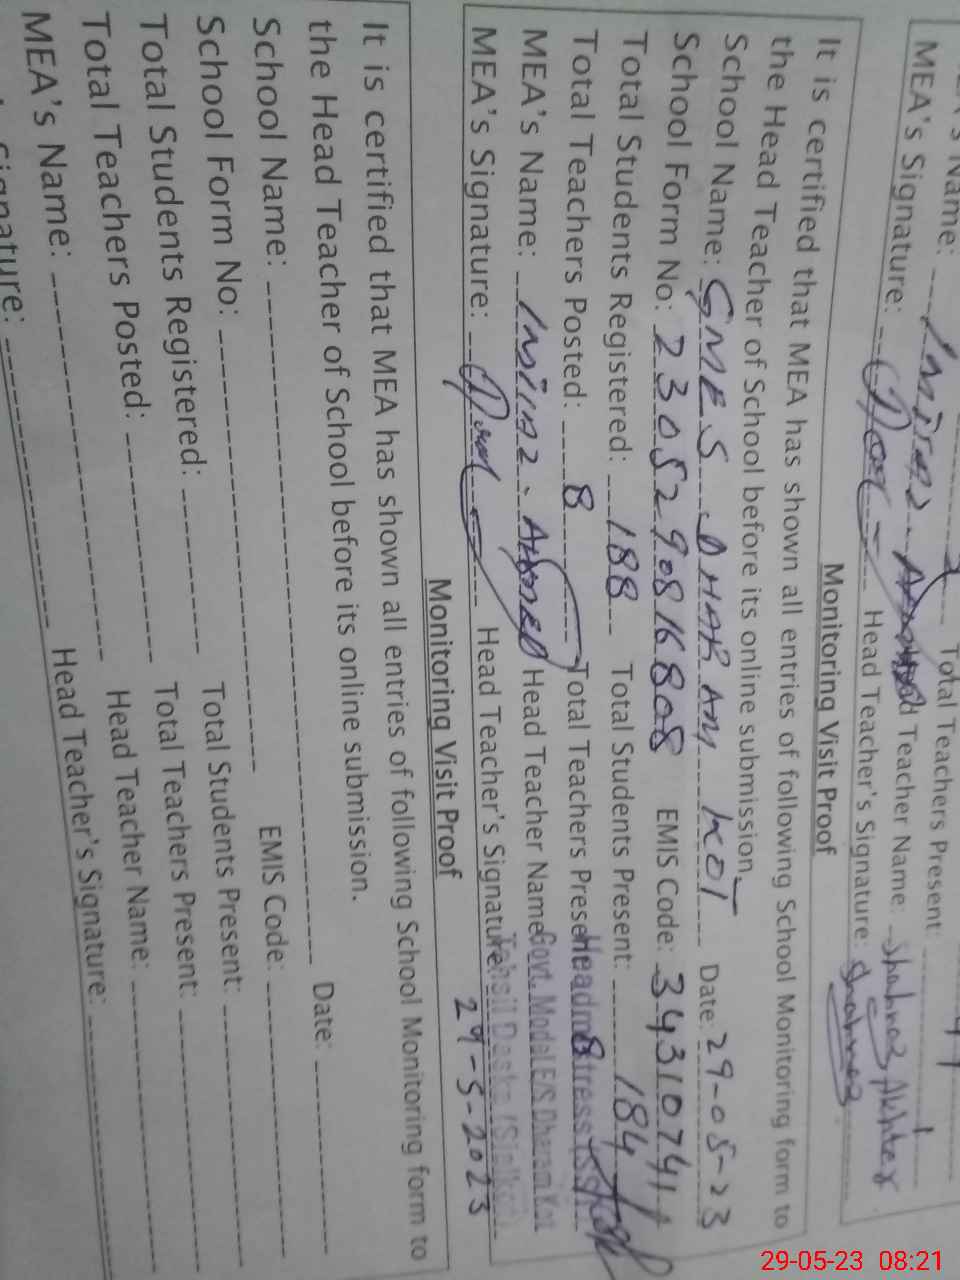 Name:
Total Teachers Present:
MEA's Signature: Head Teacher Name: Shahnaz Akhter
Head Teacher's Signature: Shahnaz
Monitoring Visit Proof
It is certified that MEA has shown all entries of following School Monitoring form to
the Head Teacher of School before its online submission.
School Name: GMES DHARAM KOT Date: 29-05-23
School Form No: 2305290816808 EMIS Code: 34310741
Total Students Registered: 188 Total Students Present: 184
Total Teachers Posted: 8 Total Teachers Present: 8
Headmistress
MEA's Name: Imiaz. AHMED Head Teacher Name:
Govt. Model E/S Dharam Kot
MEA's Signature: Head Teacher's Signature:
Tehsil Daska (Sialkot)
29-5-2023
Monitoring Visit Proof
It is certified that MEA has shown all entries of following School Monitoring form to
the Head Teacher of School before its online submission.
School Name: Date:
School Form No: EMIS Code:
Total Students Registered: Total Students Present:
Total Teachers Posted: Total Teachers Present:
MEA's Name: Head Teacher Name:
Signature: Head Teacher's Signature:
29-05-23 08:21